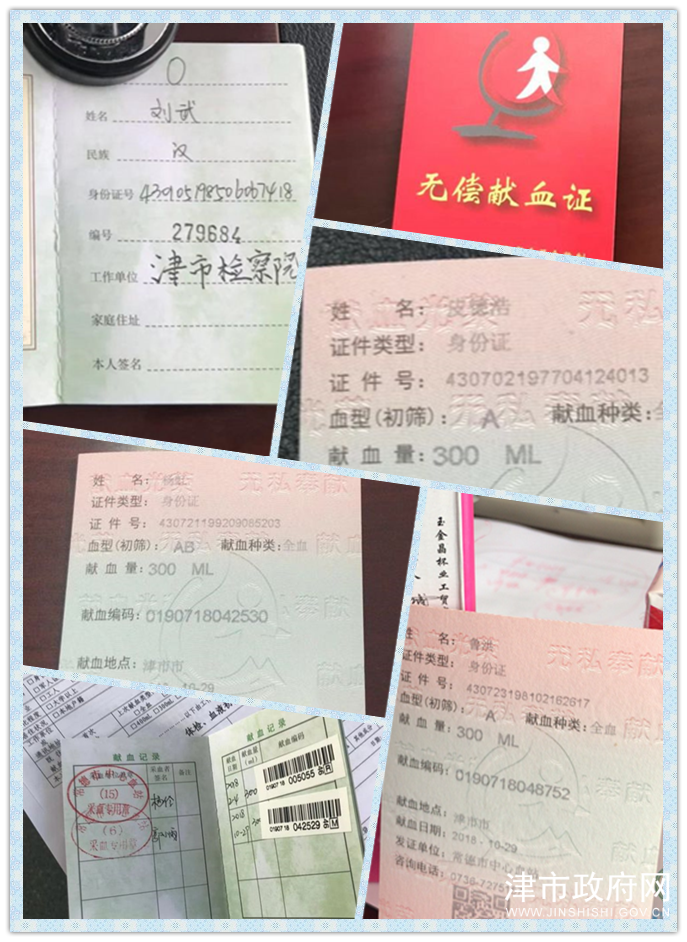 姓名 刘武
民族 汉
身份证号
编号 279684
工作单位 津市检察院
家庭住址
本人签名
无偿献血证
姓 名: 皮德浩
证件类型: 身份证
证 件 号: 430702197704124013
血型(初筛): A 献血种类:
献 血 量: 300 ML
姓 名:
证件类型: 身份证
证 件 号: 430721199209085203
血型(初筛): AB 献血种类: 全血
献 血 量: 300 ML
献血编码: 0190718042530
献血地点: 津市市
10-29
玉金晶杯业工贸
姓 名: 鲁洪
证件类型: 身份证
证 件 号: 430723198102162617
血型(初筛): A 献血种类: 全血
献 血 量: 300 ML
献血编码: 0190718048752
献血地点: 津市市
献血日期: 2018-10-29
发证单位: 常德市中心血站
咨询电话: 0736-7275
献血记录
采血者签名 备注
(15)
采血专用章
(6)
采血专用章
献血记录
献血日期 献血量(ml) 献血编码
0190718 005055
0190718 042529
津市政府网
WWW.JINSHISHI.GOV.CN